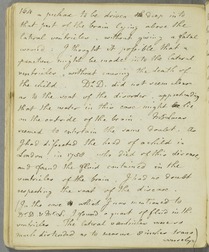 160. a puncture to be drawn deep into
that part of the brain lying above the
lateral ventricles, without giving a fatal
wound. I thought it possible that a
puncture might be made into the lateral
ventricles, without causing the death of
the child. did not seem clear
as to the seat of the disorder, apprehending
that the water in this case might be
on the outside of the brain.
seemed to entertain the same doubt. As
I had dissected the head of a child in
London, in who died of this disease,
and found the fluid contained in the
ventricles of the brain, I had no doubt
respecting the seat of the disease.
In the one which I now mentioned to
I found a quart of fluid in the
ventricles. The lateral ventricles were so
much distended as to assume a